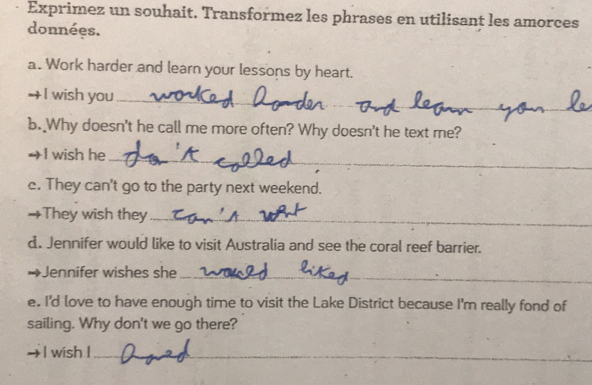 Exprimez un souhait. Transformez les phrases en utilisant les amorces
données.
a. Work harder and learn your lessons by heart.
→I wish you worked harder and learn your le
b. Why doesn't he call me more often? Why doesn't he text me?
→I wish he don't called
c. They can't go to the party next weekend.
→They wish they can't went
d. Jennifer would like to visit Australia and see the coral reef barrier.
→Jennifer wishes she would liked
e. I'd love to have enough time to visit the Lake District because I'm really fond of
sailing. Why don't we go there?
→I wish I